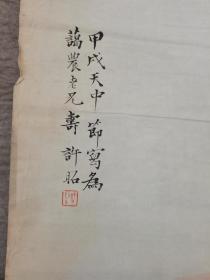 甲戌天中節寫為
藹農老兄壽 許昭